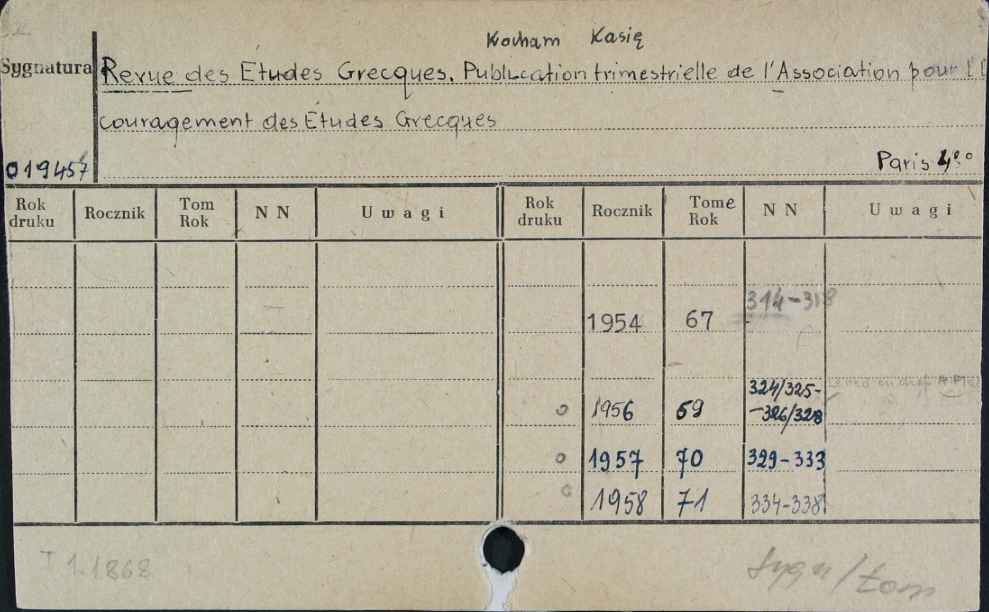 Kocham Kasię
Sygnatura Revue des Etudes Grecques. Publication trimestrielle de l'Association pour l'
couragement des Études Grecques
019457 Paris 4°
Rok druku Rocznik Tom Rok N N Uwagi Rok druku Rocznik Tome Rok N N Uwagi
1954 67 314-318
324/325-
o 1956 69 -326/328
o 1957 70 329-333
o 1958 71 334-338
T 1.1868 Sygn/tom